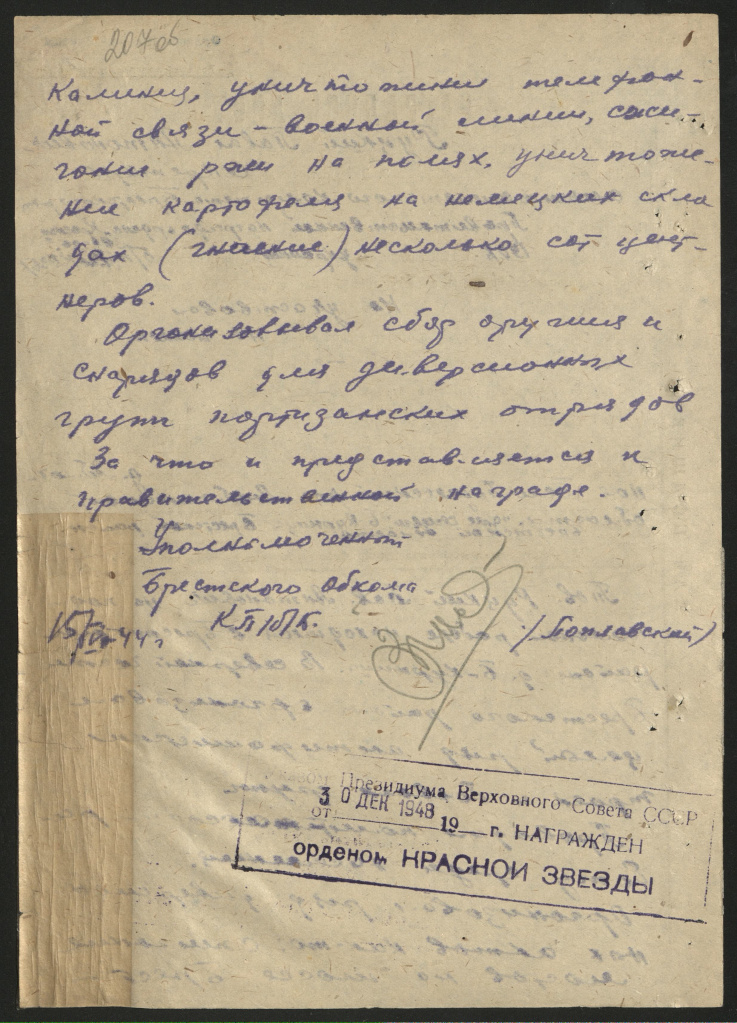 207об
Каминиц, уничтожении телефон-
ной связи – военной линии, сжи-
гание ржи на полях, уничтоже-
нии картофеля на немецких скла
дах (гниение) несколько сот цент-
неров.
Организовывал сбор оружия и
снарядов для диверсионных
групп партизанских отрядов
За что и представляется к
правительственной награде.
Уполномоченный
Брестского обкома
КП/б/Б.
/Поплавский/
44г
Указом Президиума Верховного Совета СССР
от 30 ДЕК 1948 19 г. НАГРАЖДЕН
орденом КРАСНОЙ ЗВЕЗДЫ